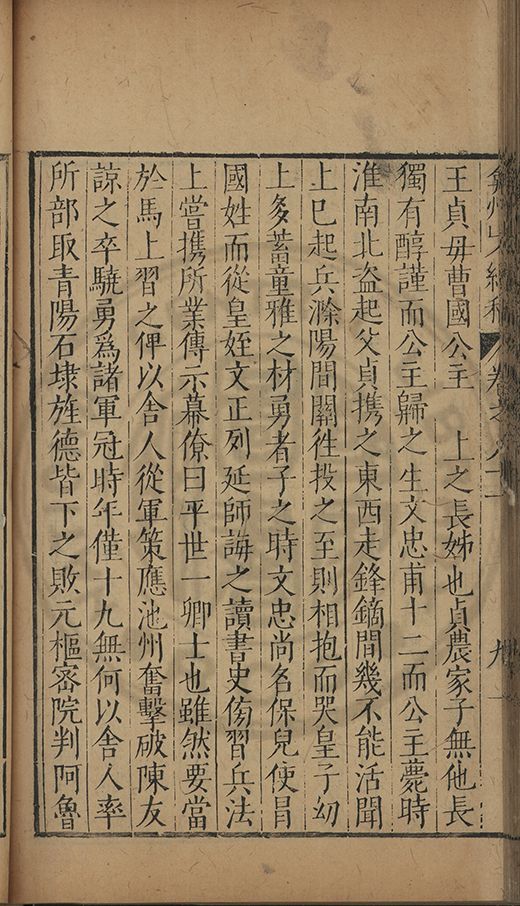 弇州山人續稿 卷之八十一 九
王貞母曹國公主 上之長姊也貞農家子無他長
獨有醇謹而公主歸之生文忠甫十二而公主薨時
淮南北盗起父貞携之東西走鋒鏑間幾不能活聞
上巳起兵滁陽間關徃投之至則相抱而哭皇子㓜
上多蓄童雅之材勇者子之時文忠尚名保兒使冐
國姓而從皇姪文正列延師誨之讀書史傍習兵法
上嘗携所業傳示幕僚曰平世一卿士也雖然要當
於馬上習之俾以舍人從軍策應池州奮擊破陳友
諒之卒驍勇爲諸軍冠時年僅十九無何以舍人率
所部取青陽石埭旌德皆下之敗元樞宻院判阿魯